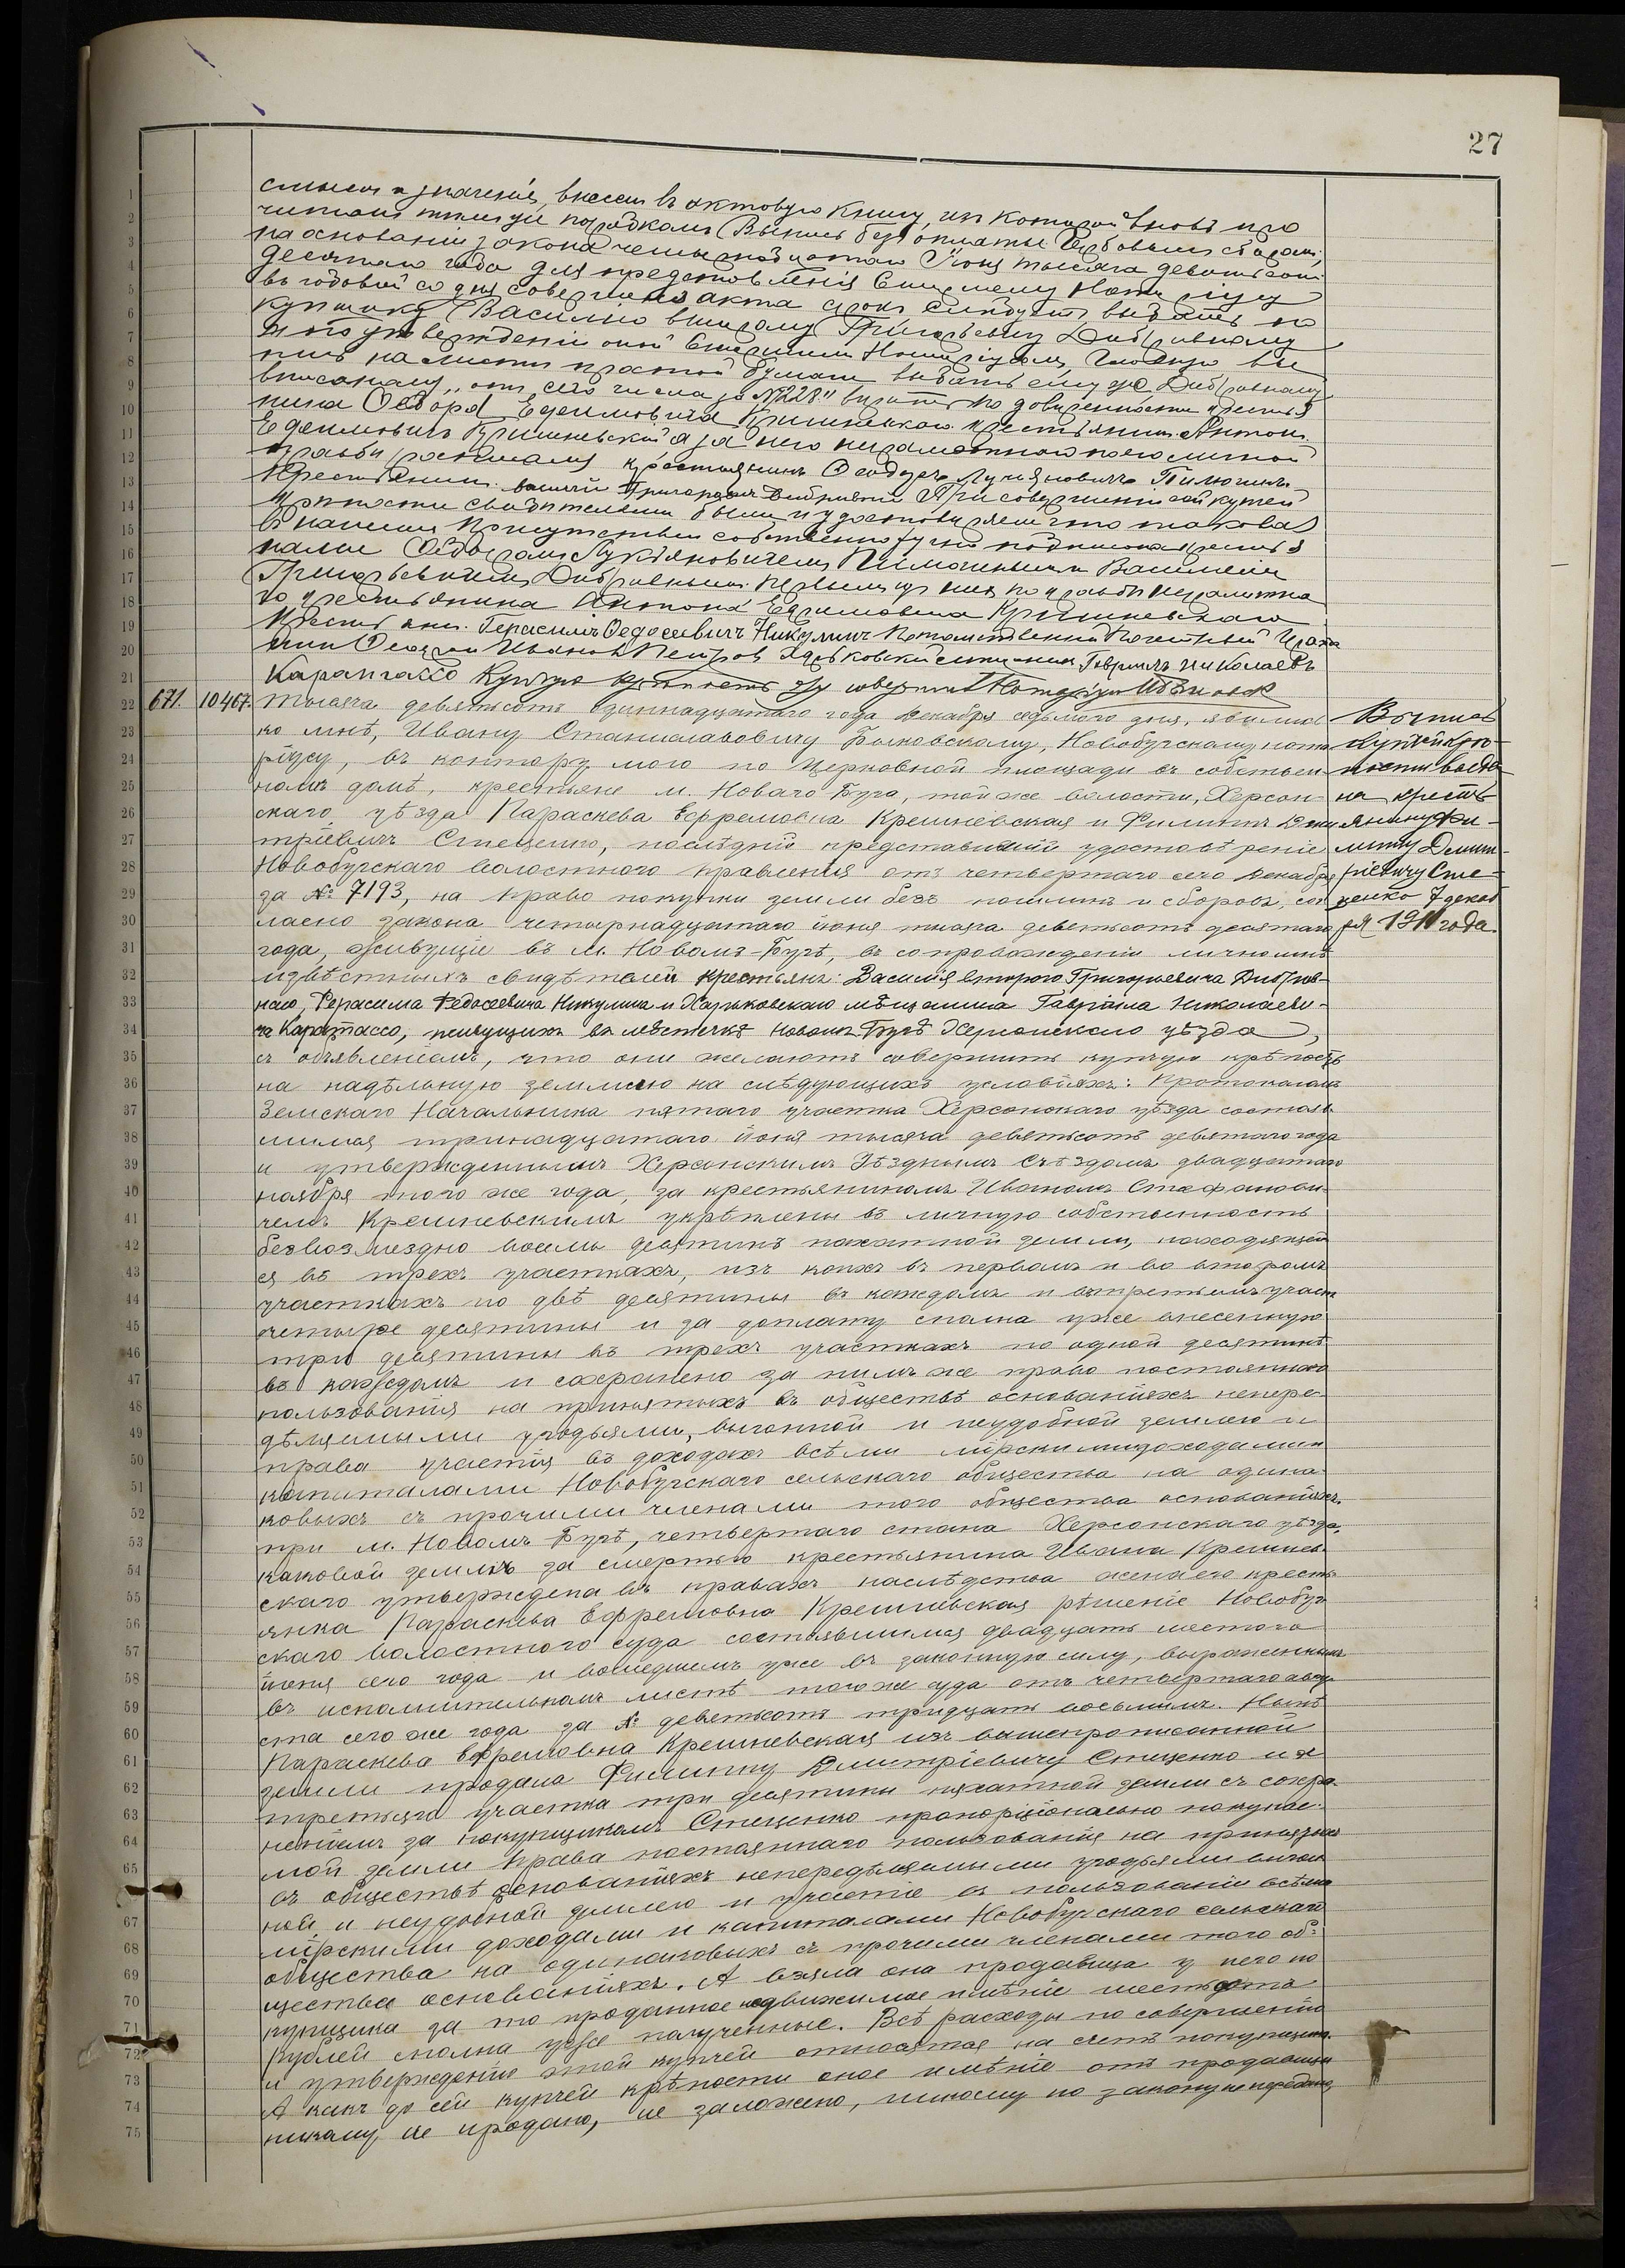 27
смысла и значенія, внесен въ актовую книгу, из которой вновь про
на основаніи закона четырнадцатаго Іюня тысяча девятьсотъ
десятаго года для представленія Старшему Нотаріусу
въ годовой со дня совершенія акта срокъ слѣдуетъ выдать по
купщику Василію второму Григорьевичу Дибривному
нина Федора Ефимовича Кришневскаго крестьянинъ Антонъ
Ефимовичъ Кришневскій а за него неграмотнаго по его личной
просьбѣ росписался крестьянинъ Феодоръ Лукіяновичъ Пилюгинъ
Крестьянинъ Василій Григорьевъ Дибривный При совершеніи сей купчей
крѣпости свидѣтелями были и удостовѣряемъ что таковая
въ нашемъ присутствіи собственноручно подписана крестья
нами Федоромъ Лукіяновичемъ Пилюгинымъ и Василіемъ
Григорьевичемъ Дибривнымъ первымъ изъ нихъ по просьбѣ неграмотна
го крестьянина Антона Ефимовича Кришневскаго
Крестьянинъ Герасимъ Федосеевичъ Никулинъ Потомственный Почетный Гражда
нинъ Иванов Петров Харьковскій мѣщанинъ Гавріилъ Николаевъ
Карантассо Купчую крѣпость эту совершилъ Нотаріусъ
671. 10467. Тысяча девятьсотъ одиннадцатаго года декабря седьмого дня, явились
ко мнѣ, Ивану Станиславовичу Быковскому, Новобугскому нота
ріусу, въ контору мою по Церковной площади въ собствен
номъ домѣ, крестьяне м. Новаго Буга, той же волости, Херсон
скаго уѣзда Параскева Ефремовна Кремневская и Филиппъ Дми
тріевичъ Стеценко, послѣдній представившій удостовѣреніе
Новобугскаго волостного правленія отъ четвертаго сего декабря
за № 7193, на право покупки земли безъ пошлинъ и сборовъ, сог
ласно закона четырнадцатаго іюня тысяча девятьсотъ десятаго
года, живущіе въ м. Новомъ-Бугѣ, въ сопровожденіи личномнѣ
извѣстныхъ свидѣтелей крестьянъ: Василія второго Григорьевича Дибрив-
наго, Герасима Федосеевича Никулина и Харьковскаго мѣщанина Гавріила Николаеви-
ча Карантассо, живущихъ въ мѣстечкѣ Новомъ-Бугѣ Херсонскаго уѣзда,
съ объявленіемъ, что они желаютъ совершить купчую крѣпость
на надѣльную землю на слѣдующихъ условіяхъ: Протоколомъ
Земскаго Начальника пятаго участка Херсонскаго уѣзда состояв
шимся тринадцатаго іюня тысяча девятьсотъ девятаго года
и утвержденнымъ Херсонскимъ Уѣзднымъ Съѣздомъ двадцатаго
ноября того же года, за крестьяниномъ Иваномъ Стефанови-
чемъ Кремневскимъ укрѣплены въ личную собственность
безвозмездно восемь десятинъ пахатной земли, находящей
ся въ трехъ участкахъ, изъ коихъ въ первомъ и во второмъ
участкахъ по двѣ десятины въ каждомъ и въ третьемъ участ
четыре десятины и за доплату сполна уже внесенную
три десятины въ трехъ участкахъ по одной десятинѣ
въ каждомъ и сохранено за нимъ же право постояннаго
пользованія на принятыхъ въ обществѣ основаніяхъ непере-
дѣляемыми угодьями, выгонной и неудобной землею и
права участія въ доходахъ всѣми мірскими доходами и
капиталами Новобугскаго сельскаго общества на одина-
ковыхъ съ прочими членами того общества основаніяхъ
при м. Новомъ Бугѣ, четвертаго стана Херсонскаго уѣзда,
каковой земли за смертью крестьянина Ивана Кремнев-
скаго утверждена въ правахъ наслѣдства жена его кресть-
янка Параскева Ефремовна Кремневская рѣшеніе Новобуг
скаго волостного суда состоявшимся двадцать шестого
іюня сего года и вошедшемъ уже въ законную силу, выраженнымъ
въ исполнительномъ листѣ того же суда отъ четвертаго авгу-
ста сего же года за № девятьсотъ тридцать восьмымъ. Нынѣ
Параскева Ефремовна Кремневская изъ вышепрописанной
земли продала Филиппу Дмитріевичу Стеценко изъ
третьяго участка три десятины пахатной земли съ сохра-
неніемъ за покупщикомъ Стеценко пропорціонально покупае-
мой земли права постояннаго пользованія на принятыхъ
въ обществѣ основаніяхъ непередѣляемыми угодьями выгон
ной и неудобной землею и участіе въ пользованіи всѣми
мірскими доходами и капиталами Новобугскаго сельскаго
общества на одинаковыхъ съ прочими членами того об-
щества основаніяхъ. А взяла она продавица у него по
купщика за то проданное недвижимое имѣніе шестьсотъ
рублей сполна уже полученные. Всѣ расходы по совершенію
и утвержденію этой купчей относятся на счетъ покупщика.
А какъ до сей купчей крѣпости оное имѣніе отъ продавицы
никому не продано, не заложено, никому по закону не передано,
Выпись
купчей крѣ-
пости выда
на кресть
янину Фи-
липпу Дмит-
ріевичу Сте-
ценко 7 декаб
ря 1911 года.